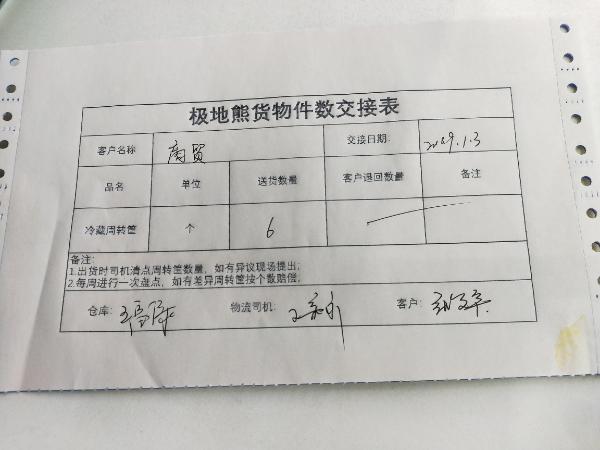 极地熊货物件数交接表
客户名称 商贸 交接日期: 2019.1.3
品名 单位 送货数量 客户退回数量 备注
冷藏周转筐 个 6
备注:
1.出货时司机清点周转筐数量，如有异议现场提出;
2.每周进行一次盘点，如有差异周转筐按个数赔偿;
仓库: 物流司机: 客户: